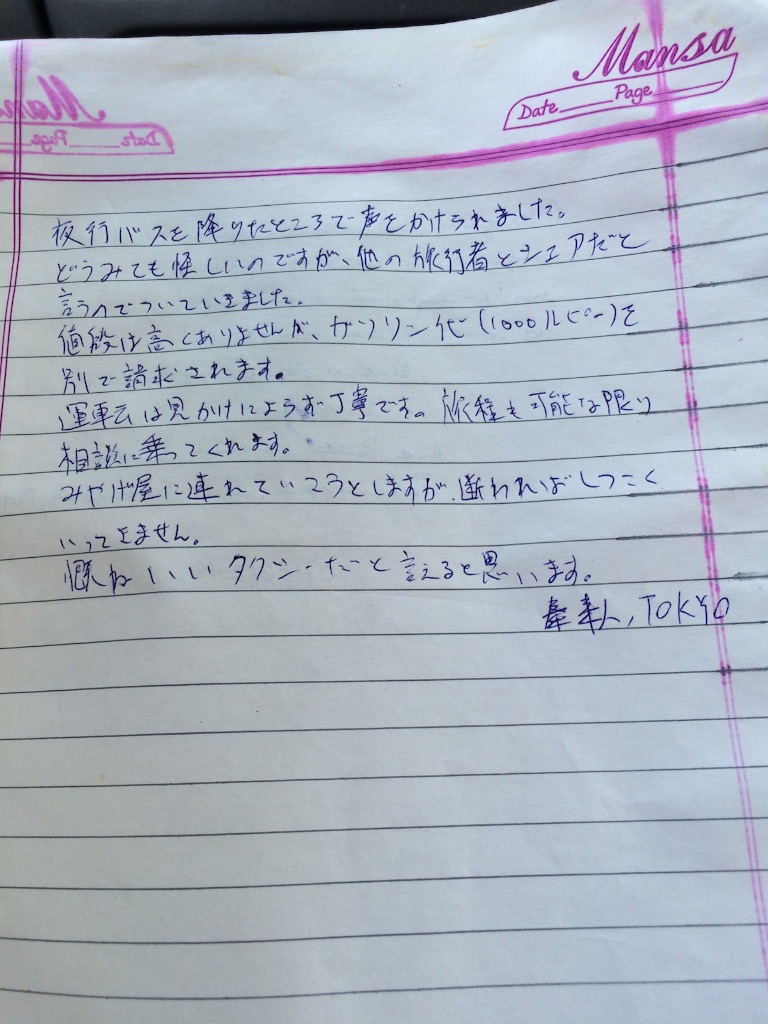 Mansa
Date Page
夜行バスを降りたところで声をかけられました。
どうみても怪しいのですが、他の旅行者とシェアだと
言うのでついていきました。
値段は高くありませんが、ガソリン代(1000ルピー)を
別で請求されます。
運転は見かけによらず丁寧です。旅程も可能な限り
相談に乗ってくれます。
みやげ屋に連れていこうとしますが、断わればしつこく
いってきません。
概ねいいタクシーだと言えると思います。
TOKYO